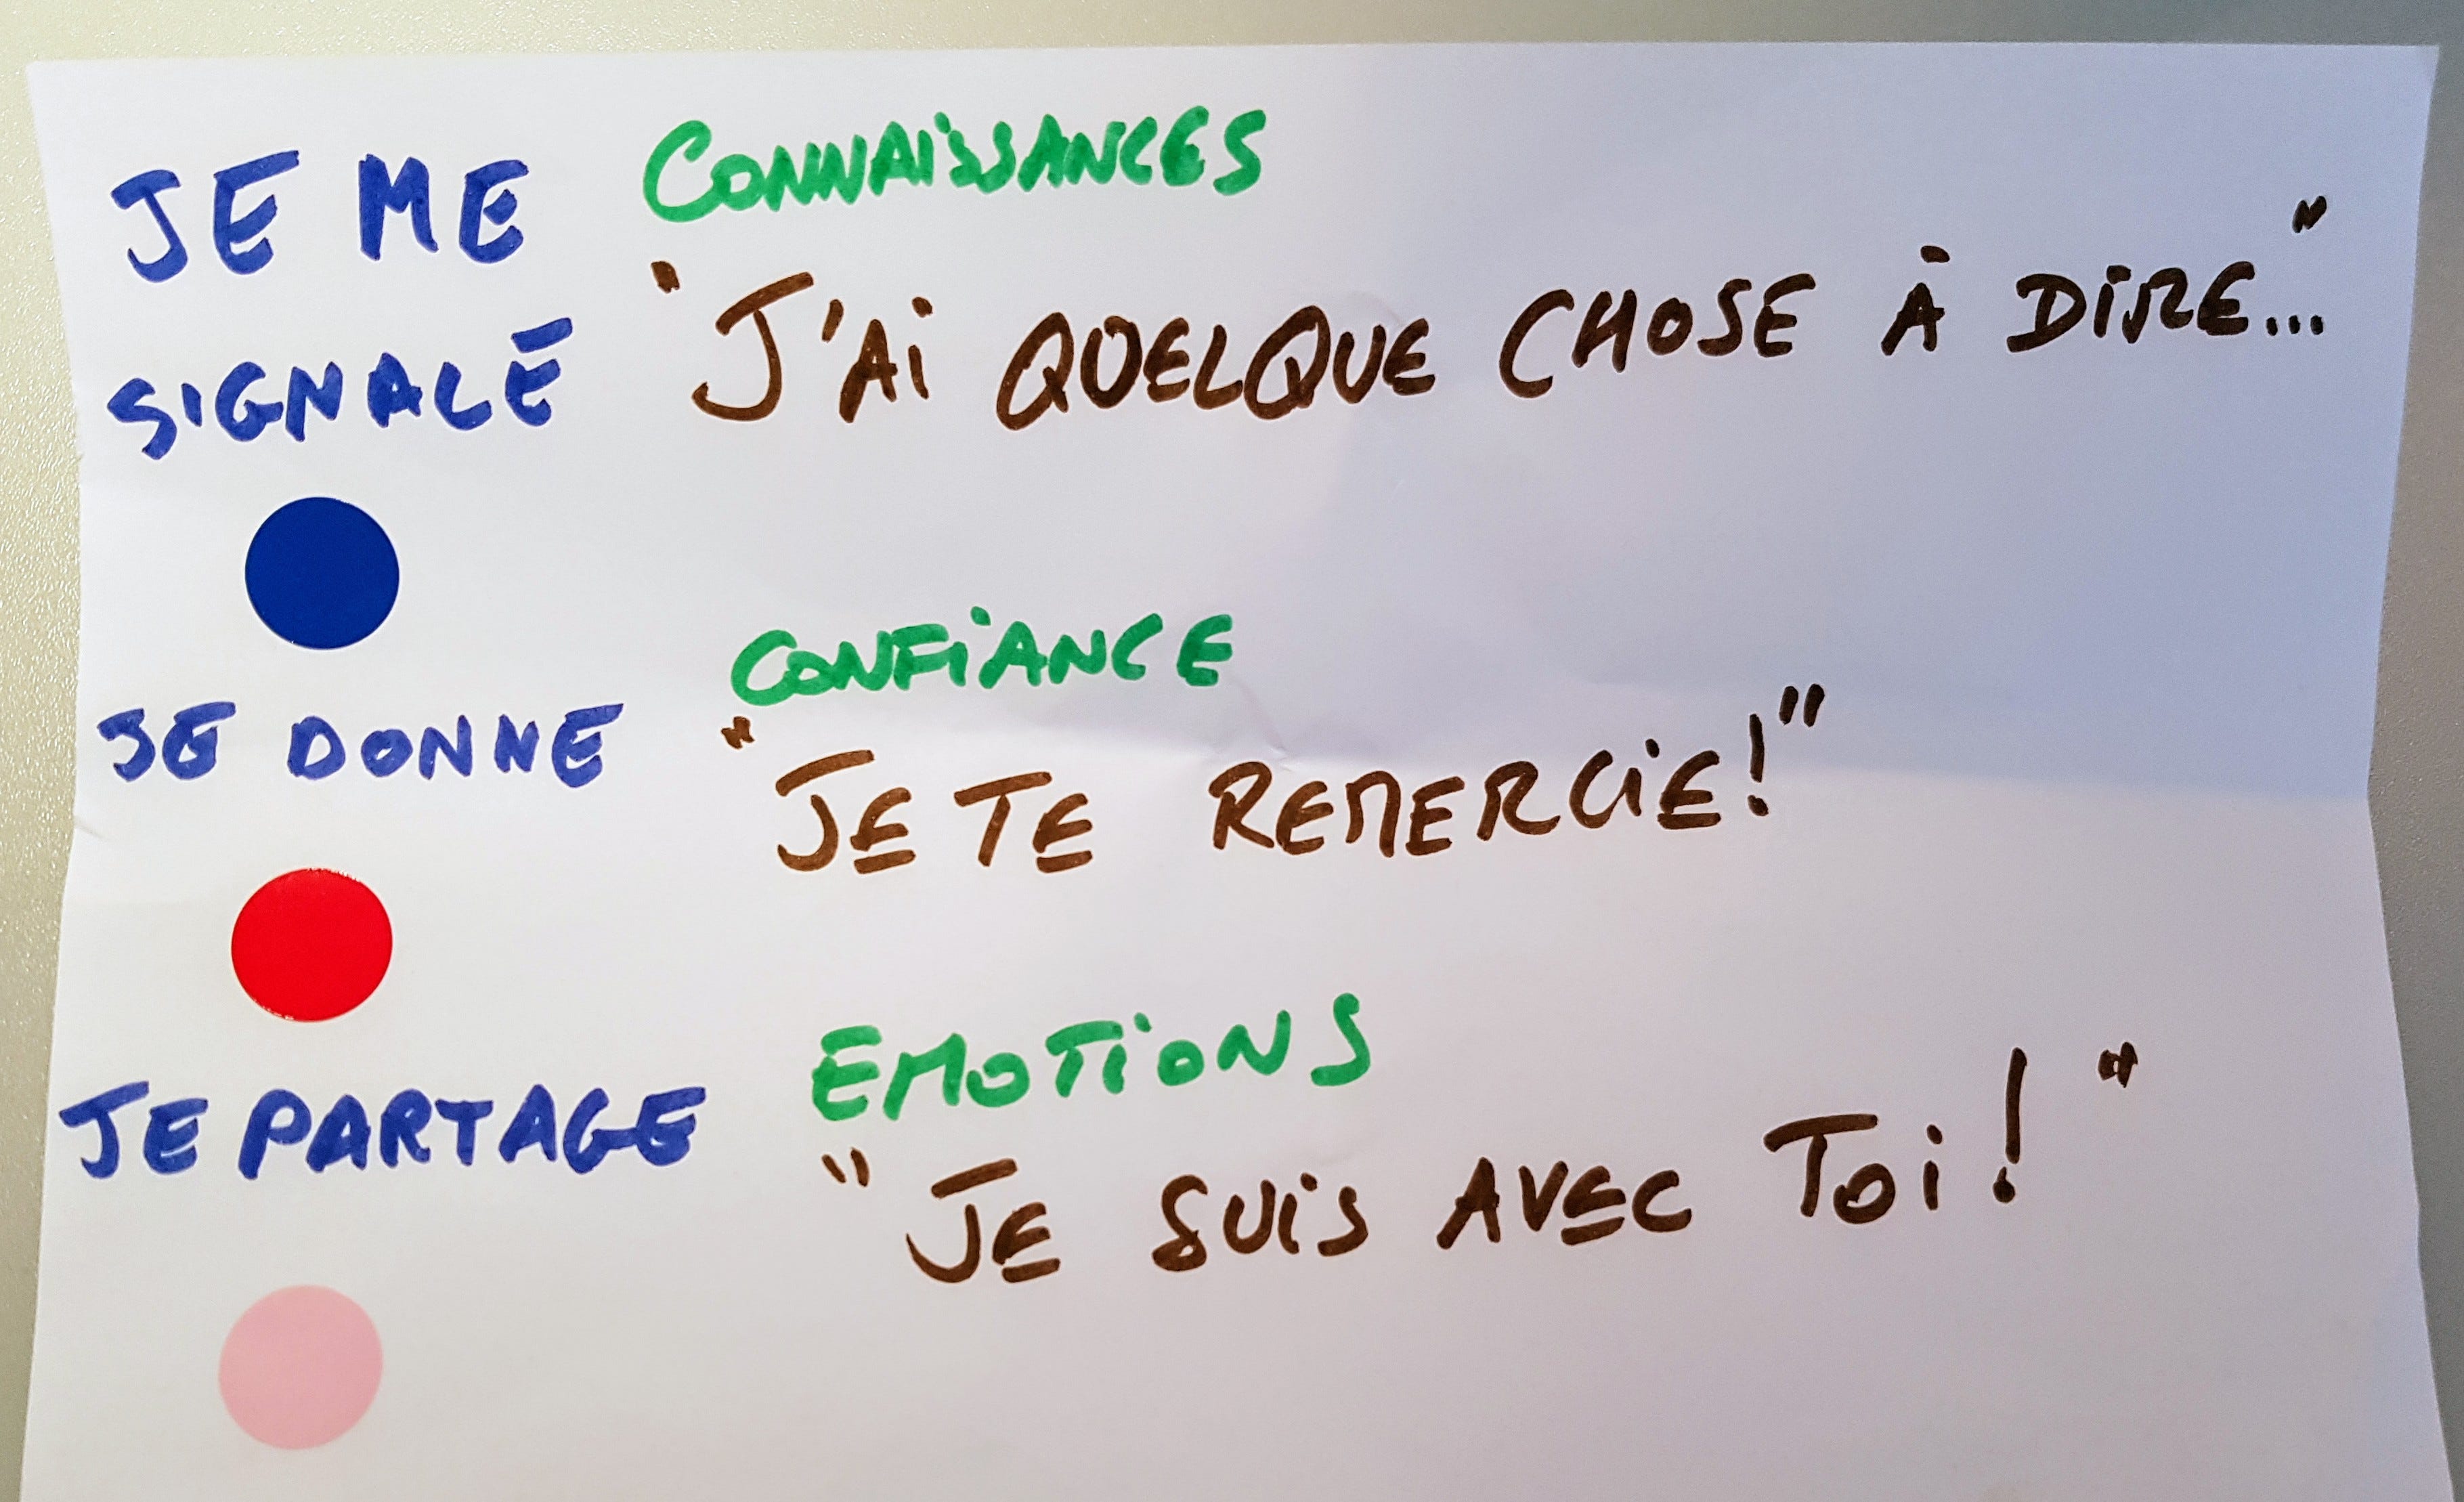 JE ME
SIGNALÉ
CONNAISSANCES
"J'AI QUELQUE CHOSE À DIRE..."
JE DONNE
CONFIANCE
"JE TE REMERCIE!"
JE PARTAGE
EMOTIONS
"JE SUIS AVEC TOI!"